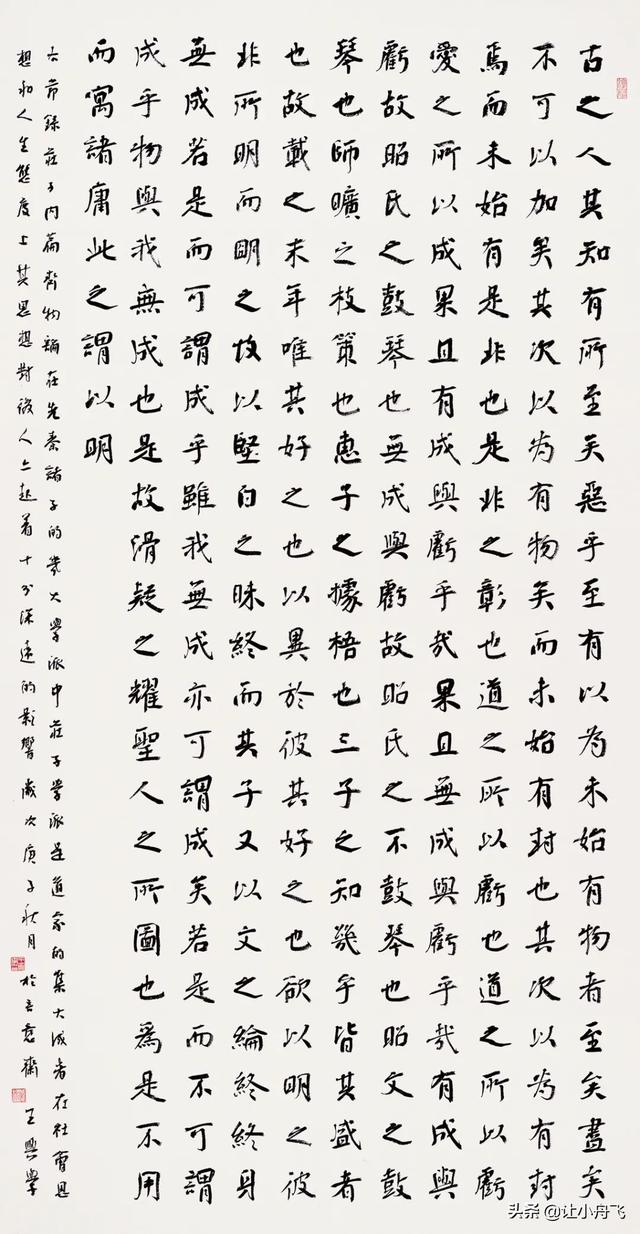 古之人其知有所至矣惡乎至有以為未始有物者至矣盡矣
不可以加矣其次以為有物矣而未始有封也其次以為有封
焉而未始有是非也是非之彰也道之所以虧也道之所以虧
愛之所以成果且有成與虧乎哉果且無成與虧乎哉有成與
虧故昭氏之鼓琴也無成與虧故昭氏之不鼓琴也昭文之鼓
琴也師曠之枝策也惠子之據梧也三子之知幾乎皆其盛者
也故載之末年唯其好之也以異於彼其好之也欲以明之彼
非所明而明之故以堅白之昧終而其子又以文之綸終終身
無成若是而可謂成乎雖我無成亦可謂成矣若是而不可謂
成乎物與我無成也是故滑疑之耀聖人之所圖也為是不用
而寓諸庸此之謂以明
右節錄莊子內篇齊物論在先秦諸子的幾大學派中莊子學派是道家的集大成者在社會思
想和人生態度上其思想對後人亦起着十分深遠的影響歲次庚子秋月於意齋王興學
头条 @让小舟飞